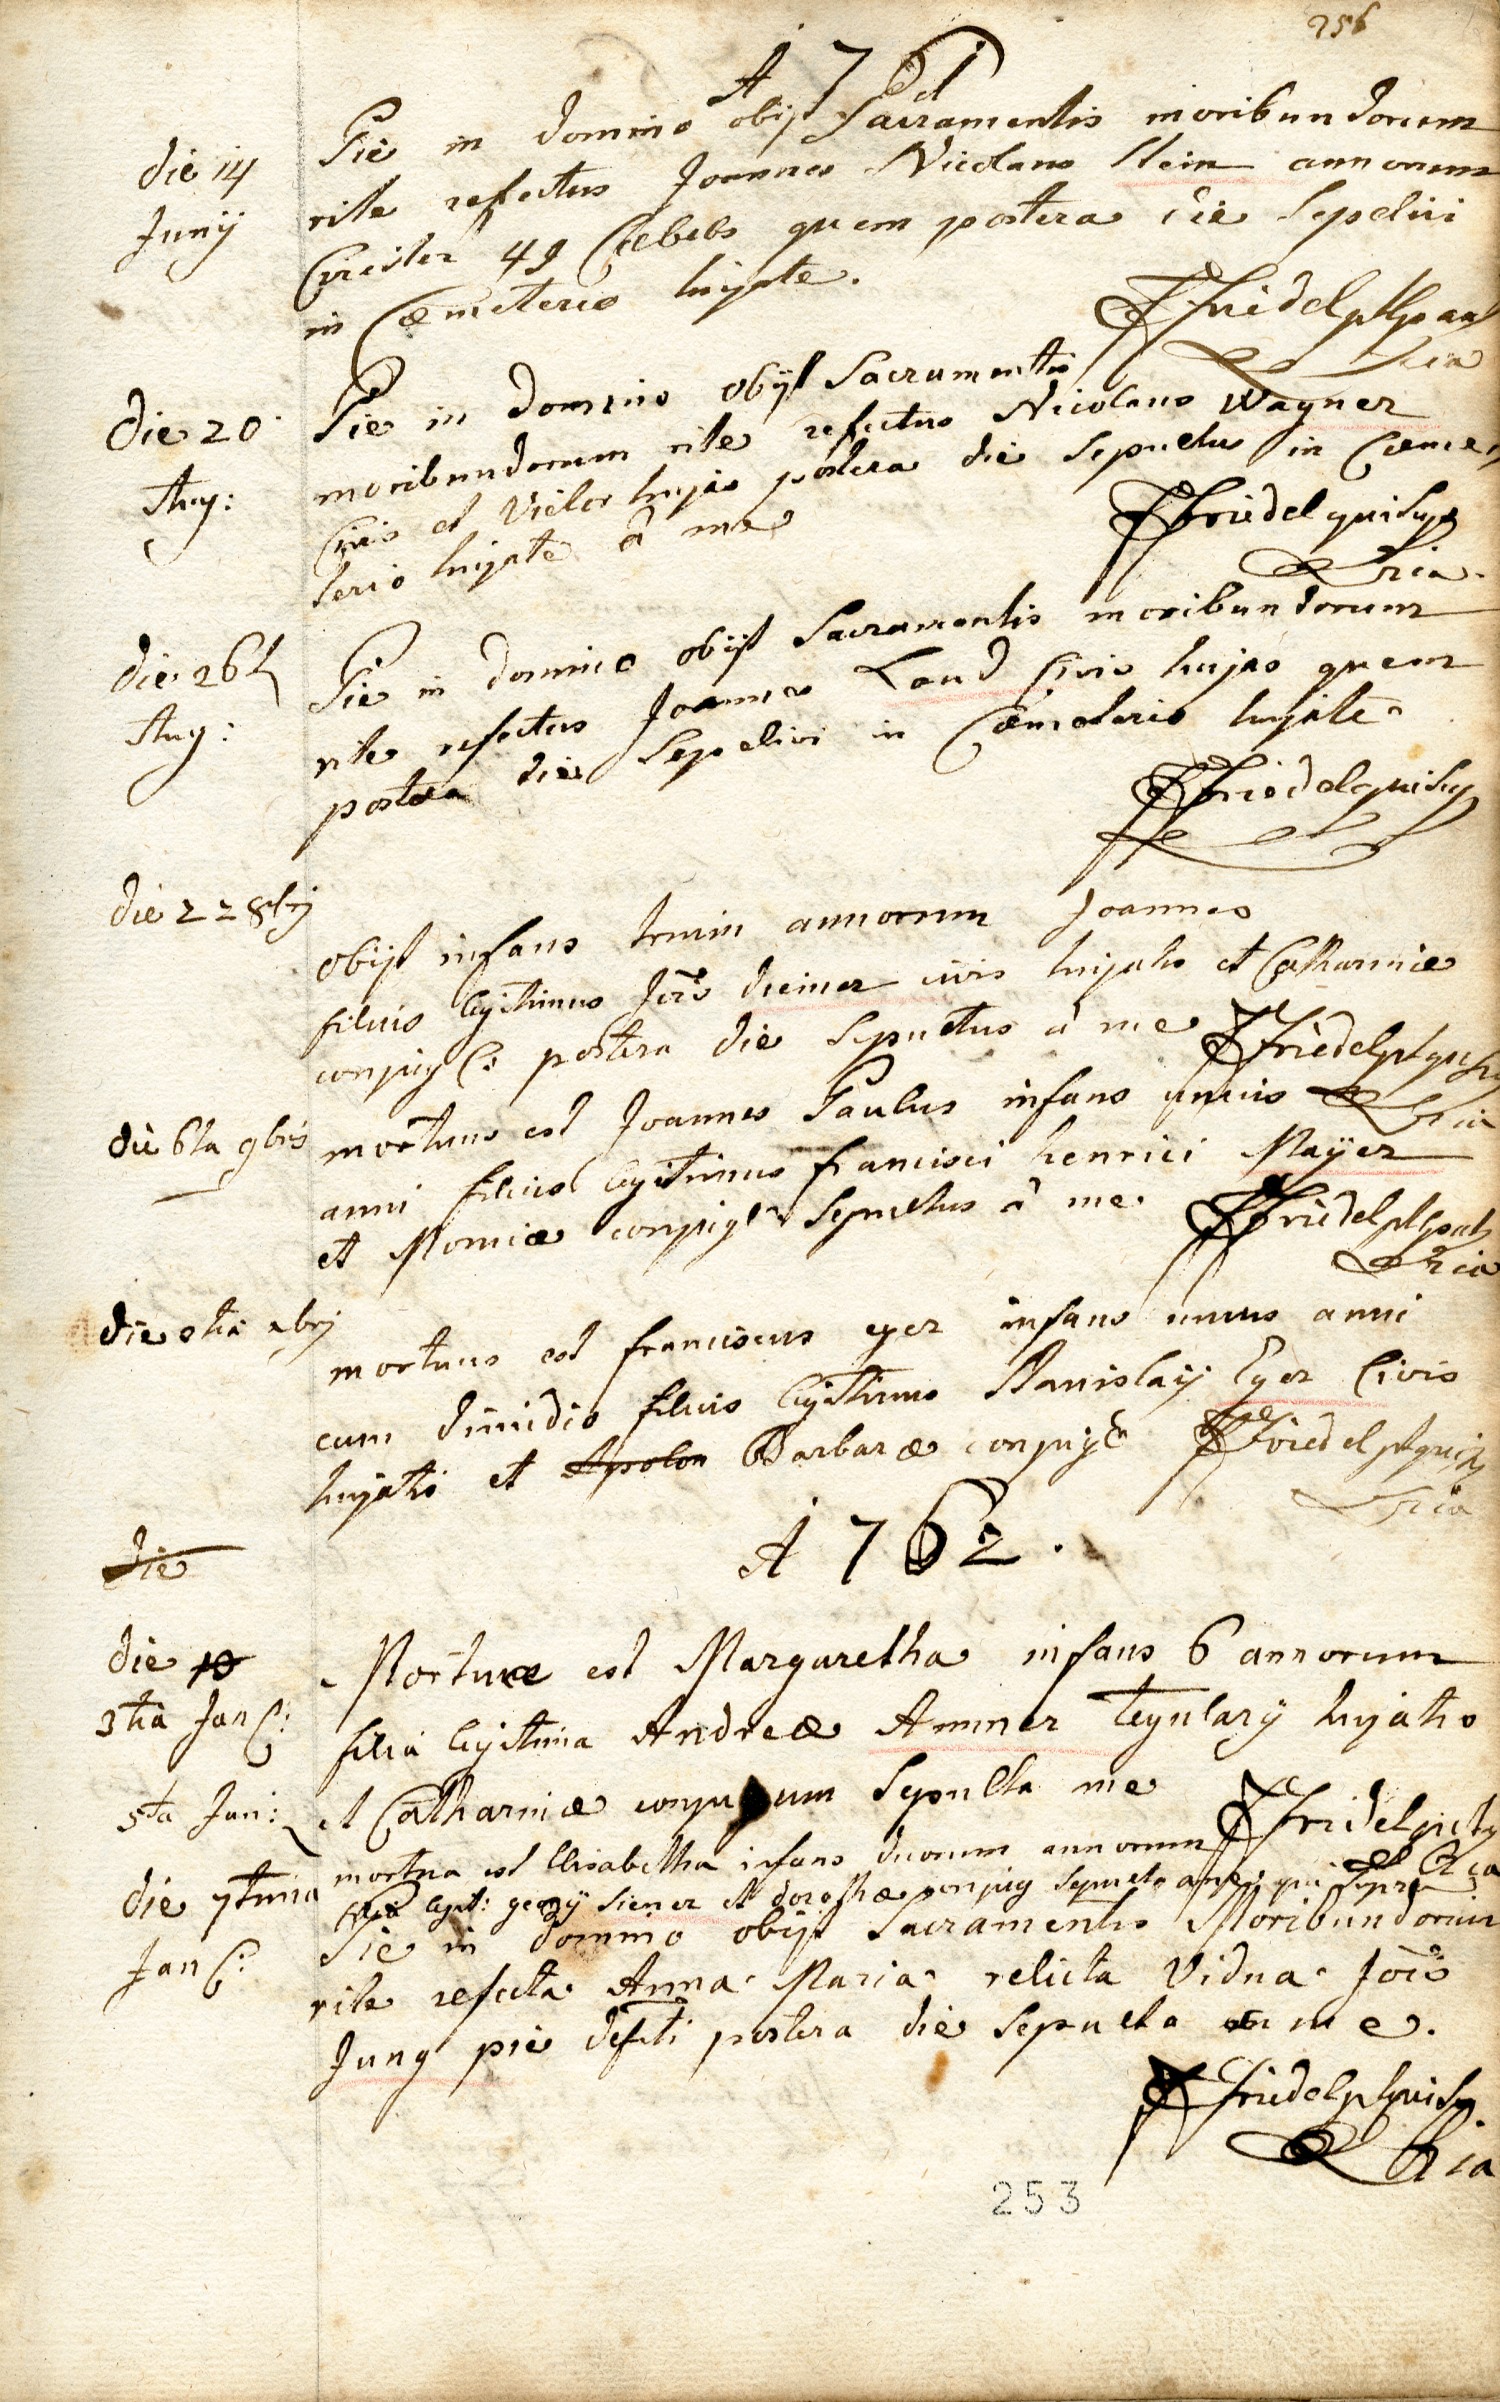 256
A 1761
die 14 Junÿ
Pie in domino obijt Sacramentis moribundorum
rite refectus Joannes Nicolaus Stein annorum
Circiter 49 Cœlebs quem postera die Sepelivi
in Cœmeterio hujate.
FFriedel
die 20 Aug:
Pie in Domino obijt Sacramentis
moribundorum rite refectus Nicolaus Wagner
Civis et Vietor hujas postera die Sepultus in Cœme
terio hujate à me
FFriedel
die 26ta Aug:
Pie in Domino obijt Sacramentis moribundorum
rite refectus Joannes Land Civis hujas quem
postera die Sepelivi in Cœmeterio hujate
FFriedel
die 22 8brj
obijt infans trium annorum Joannes
filius legitimus Jois deiner civis hujatis et Catharinæ
conjug postera die Sepultus à me FFriedel
die 6ta 9bris
mortuus est Joannes Paulus infans unius
anni filius legitimus francisci henrici Mayer
et Monicæ conjug Sepultus à me FFriedel
die
mortuus est franciscus eger infans unius anni
cum dimidio filius legitimus Stanislaij Eger Civis
hujatis et Apolon Barbaræ conjug FFriedel
A 1762.
die
die 10
3tia Jan
Mortuæ est Margaretha infans 6 annorum
filia legitima Andreæ Ammer tegularÿ hujatis
et Catharinæ conjugum Sepulta me FFridel
5ta Jan:
mortua est Elisabetha infans duorum annorum
legit: georgÿ Siener et dorothæ conjug Sepulta a me qui Supra
die 7tima Jan
Pie in domino obijt Sacramentis Moribundorum
rite refecta Anna Maria relicta Vidua Jois
Jung pie defcti postera die Sepulta a me.
FFriedel
253